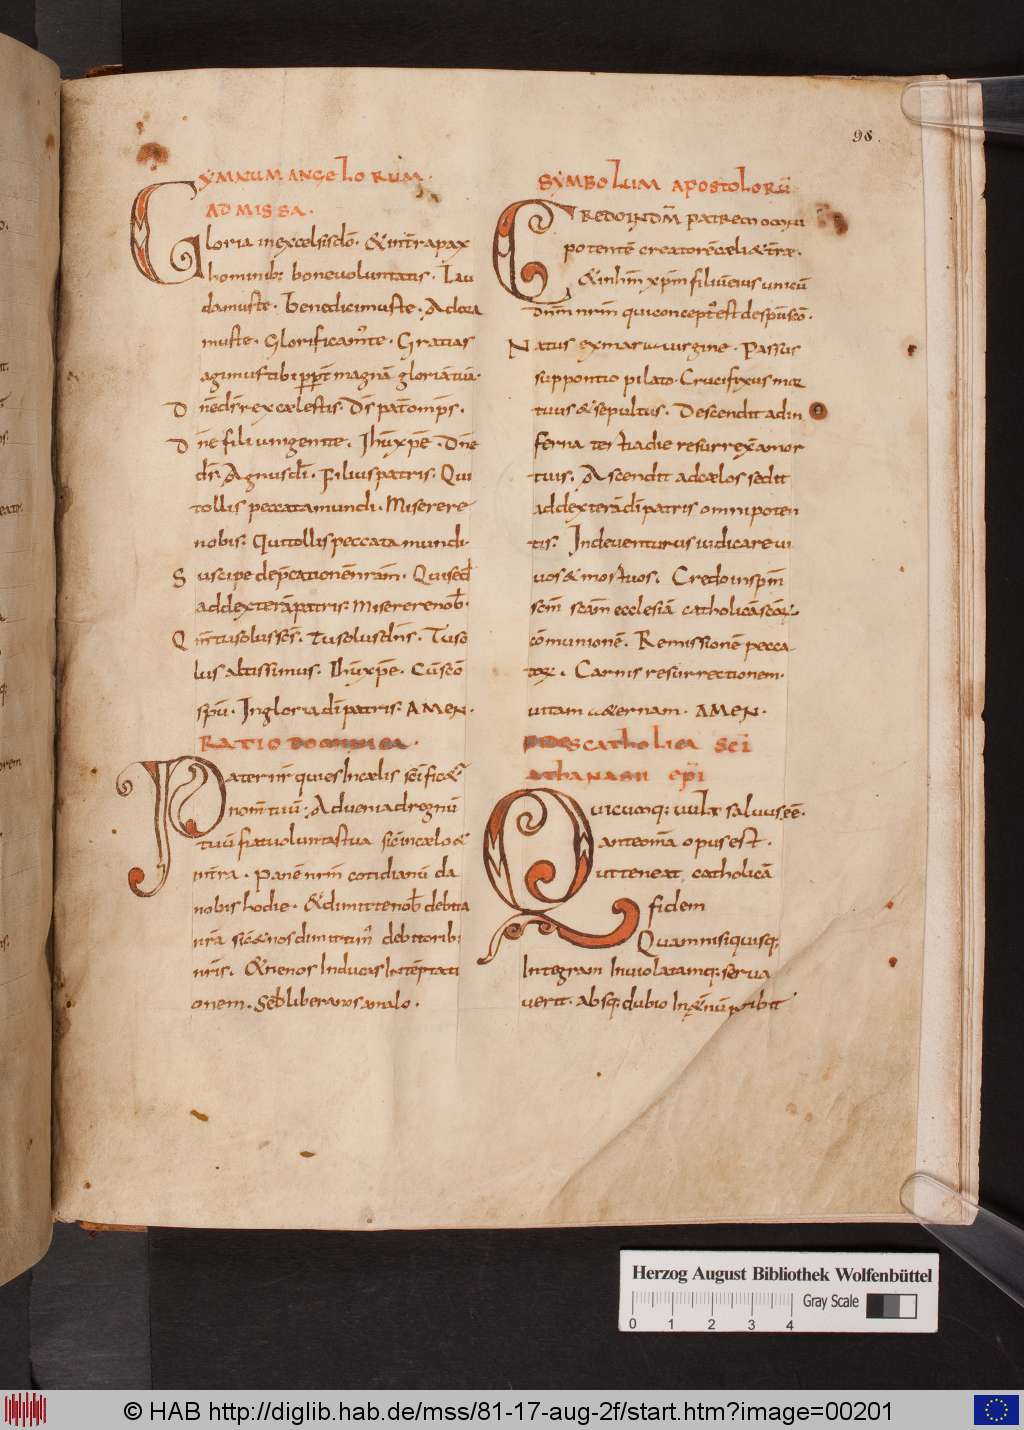 98.
YMNUM ANGELORUM.
AD MISSA.
Gloria inexcelsisdō. &intrapax
hominib; bonevoluntatis. Lau
damuste. Benedicimuste. Adora
muste. Glorificam̄te. Gratias
agimustibi magnā gloriātuā.
Dn̄edsrexcaelestis. Dspatomps.
Dn̄e fili unigenite. Ihūxpē. Dn̄e
ds. Agnusdī. Filiuspatris. Qui
tollis peccatamundi. Miserere
nobis. Quitollispeccatamundi.
Suscipe dep̄cationēnrām. Quised
addexterāpatris. Misererenob.
Qm̄tusolusscs. Tusolusdn̄s. Tuso
lus altissimus. Ihūxpē. Cūscō
spū. Ingloriadīpatris. AMEN.
RATIO DOMINICA.
Paternr quiesIncaelis scificetur
nomtuū. Adveniadregnū
tuū fiatvoluntastua sicincaelo&
intra. Panēnrm cotidianū da
nobishodie. &dimittenob debita
nrā sic&nosdimittim debitorib;
nris. &nenos Inducas Intēptati
onem. Sedliberanosamalo.
SYMBOLUM APOSTOLORŪ
CREDOINDM̄ PATREM omni
potentē creatorēcaeli&træ.
&inihm xpm filiūeius unicū
dnm nrm quiconcept;est despūscō.
Natus exmariauirgine. Passus
subpontio pilato. Crucifixus mor
tuus &sepultus. Descendit adin
ferna tertiadie resurrexamor
tuis. Ascendit adcaelos sedit
addexterādīpatris omnipoten
tis. Indeventurus iudicare ui
uos &mortuos. Credoinspm
scm scam ecclesiā catholicāscōꝝ
cōmunionē. Remissionē pecca
toꝝ. Carnis resurrectionem.
uitam &ernam. AMEN.
FIDES catholica scī
athanasii epī
Quicumq; uult saluusēē.
anteomnia opusest.
utteneat catholicā
fidem
Quamnisiquisq;
Integram Inuiolatamq; serua
uerit. absq; dubio In&nū peribit
Herzog August Bibliothek Wolfenbüttel
Gray Scale
0 1 2 3 4
© HAB http://diglib.hab.de/mss/81-17-aug-2f/start.htm?image=00201